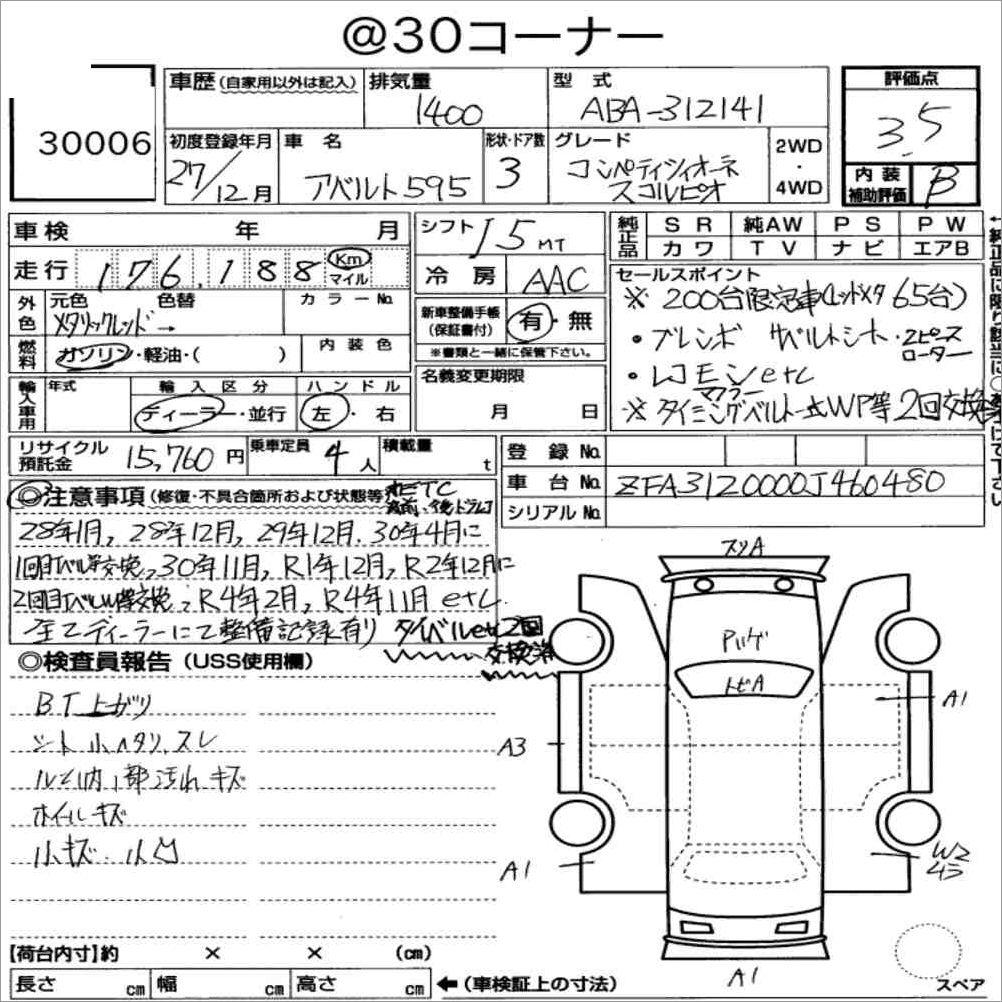 @30コーナー
30006
車歴（自家用以外は記入）
排気量 1400
型式 ABA-312141
評価点 3.5
初度登録年月 27/12月
車名 アバルト595
形状・ドア数 3
グレード コンペティツィオーネ
スコルピオ
2WD
・
4WD
内装
補助評価 B
車検 年 月
走行 176,188 Km マイル
シフト I5 MT
冷房 AAC
純正品 SR 純AW PS PW
カワ TV ナビ エアB
外色 元色 色替 カラーNo.
メタリックレッド→
燃料 ガソリン・軽油・（ ） 内装色
新車整備手帳
（保証書付） 有・無
※書類と一緒に保管下さい。
セールスポイント
※ 200台限定車(レッドメタ65台)
・ブレンボ サベルトシート・2ピース
ローター
・レコモンza etc
マフラー
※ タイミングベルト一式WP等2回交換済
輸入車用 年式 輸入区分 ハンドル
ディーラー・並行 左・右
名義変更期限
月 日
リサイクル
預託金 15,760円
乗車定員 4人
積載量 t
登録No.
車台No. ZFA3120000J460480
シリアルNo.
◎注意事項（修復・不具合箇所および状態等
ETC
28年1月, 28年12月, 29年12月. 30年4月に
1回目Tベル等交換, 30年11月, R1年12月, R2年12月に
2回目Tベル等交換, R4年2月, R4年11月 etc.
全てディーラーにて整備記録有り タイベルetc2回
交換済
◎検査員報告（USS使用欄）
BT上ガリ
シート小ヘタリ、スレ
ルーム内、部汚れ キズ
ホイールキズ
小キズ. 小凹
スリA
Pハゲ
トビA
A1
A3
A1
W2
A1
【荷台内寸】約 × × （cm）
長さ cm 幅 cm 高さ cm
←（車検証上の寸法）
スペア